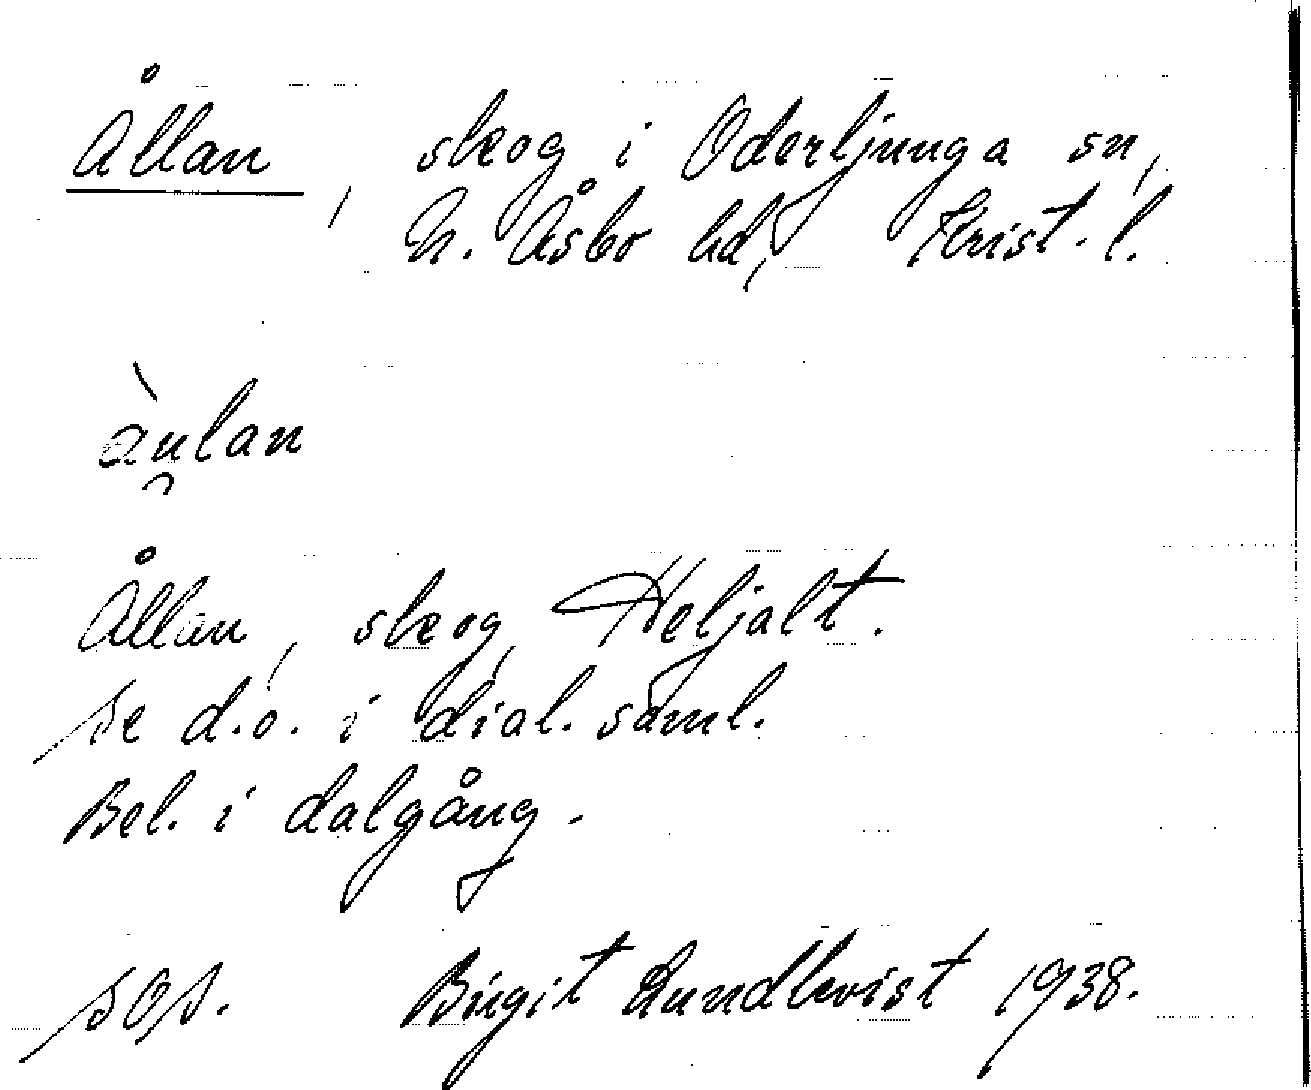 Ållan, skog i Oderljunga sn,
N. Åsbo hd, Krist. l.
àu̯lan
Ållan, skog, Heljalt.
Se d.o. i dial. saml.
Bel. i dalgång.
SOA. Birgit Lundkvist 1938.